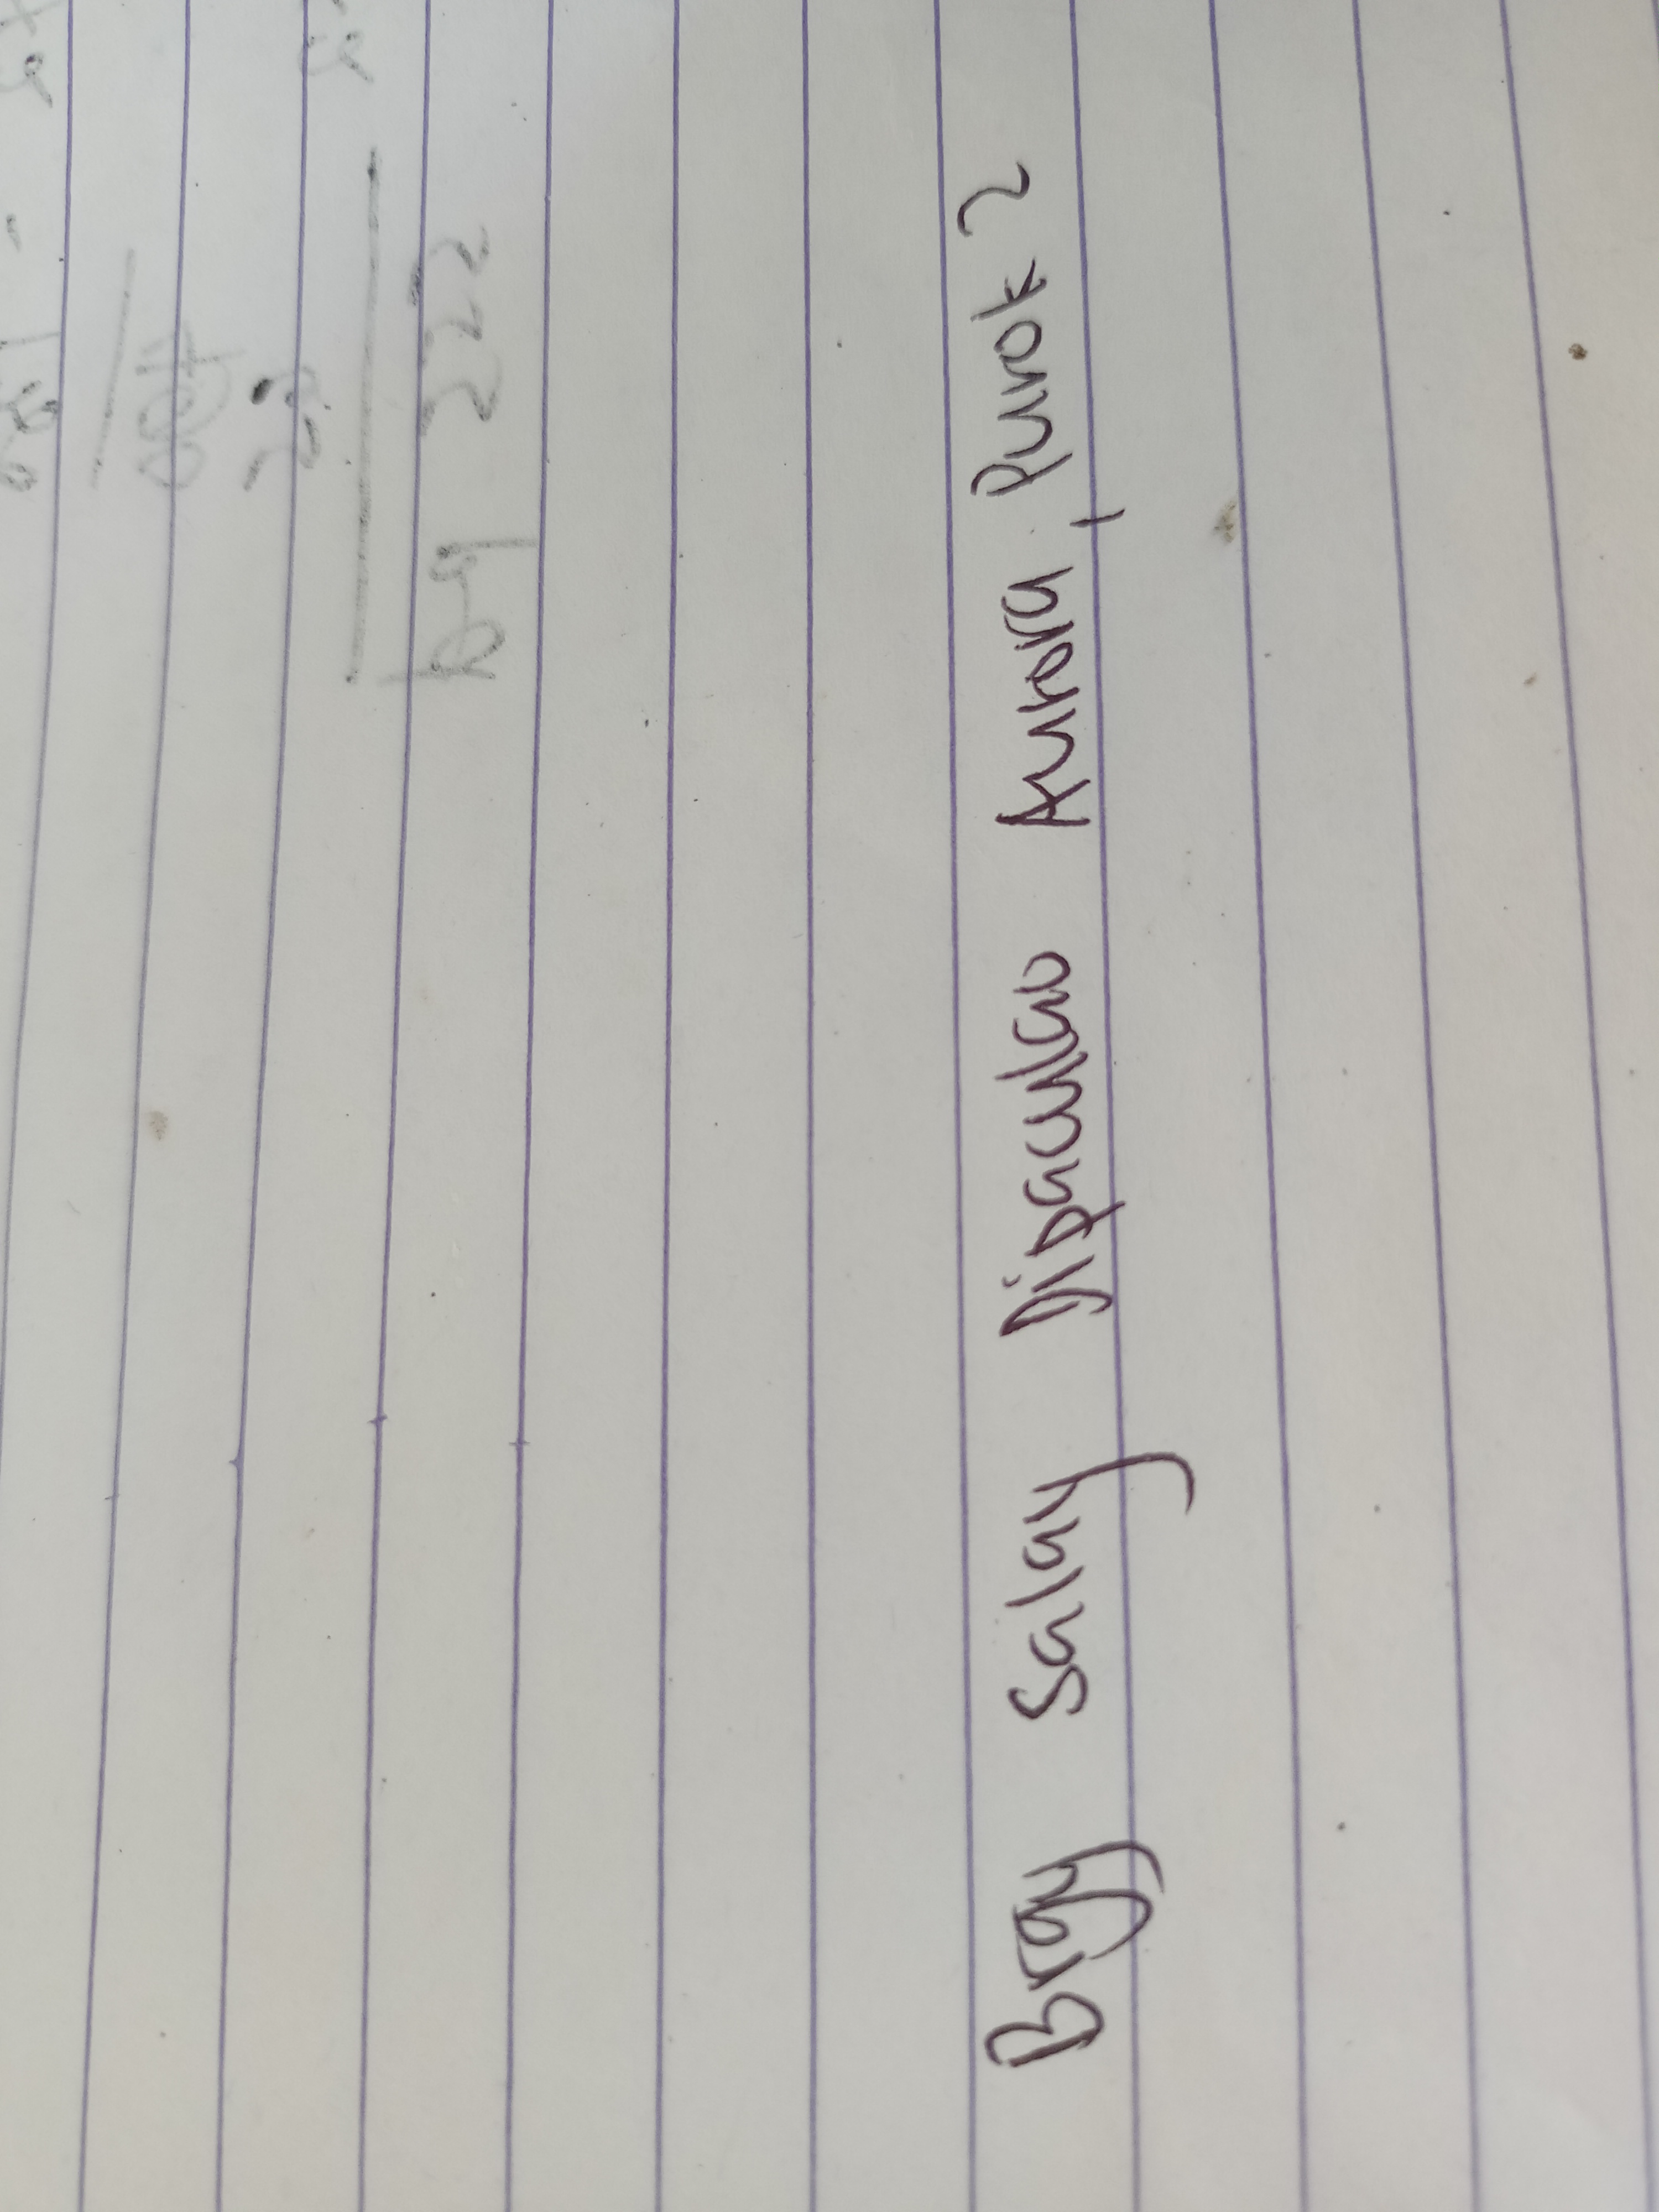 Brgy Salay Dipaculao Aurora, Purok 2